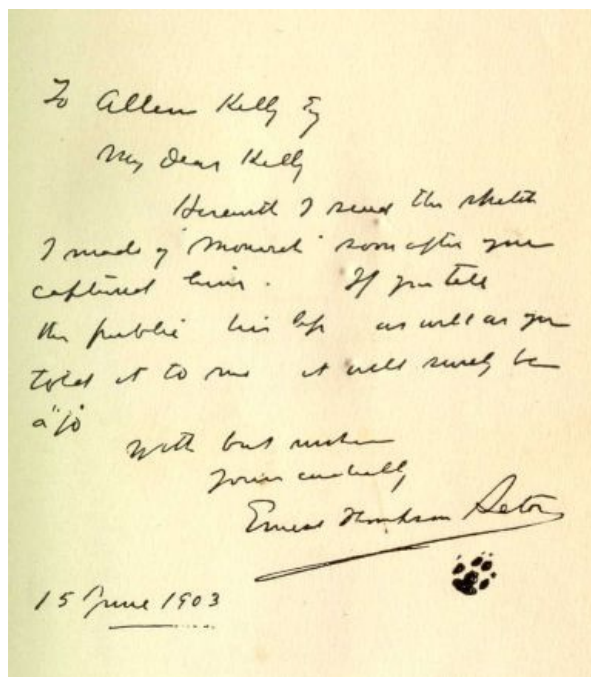 To Allen Kelly Esq
My Dear Kelly
Herewith I send the sketch
I made of "Monarch" soon after you
captured him. If you tell
the public his life as well as you
told it to me it will surely be
a "go
With best wishes
Yours cordially
Ernest Thompson Seton
15 June 1903